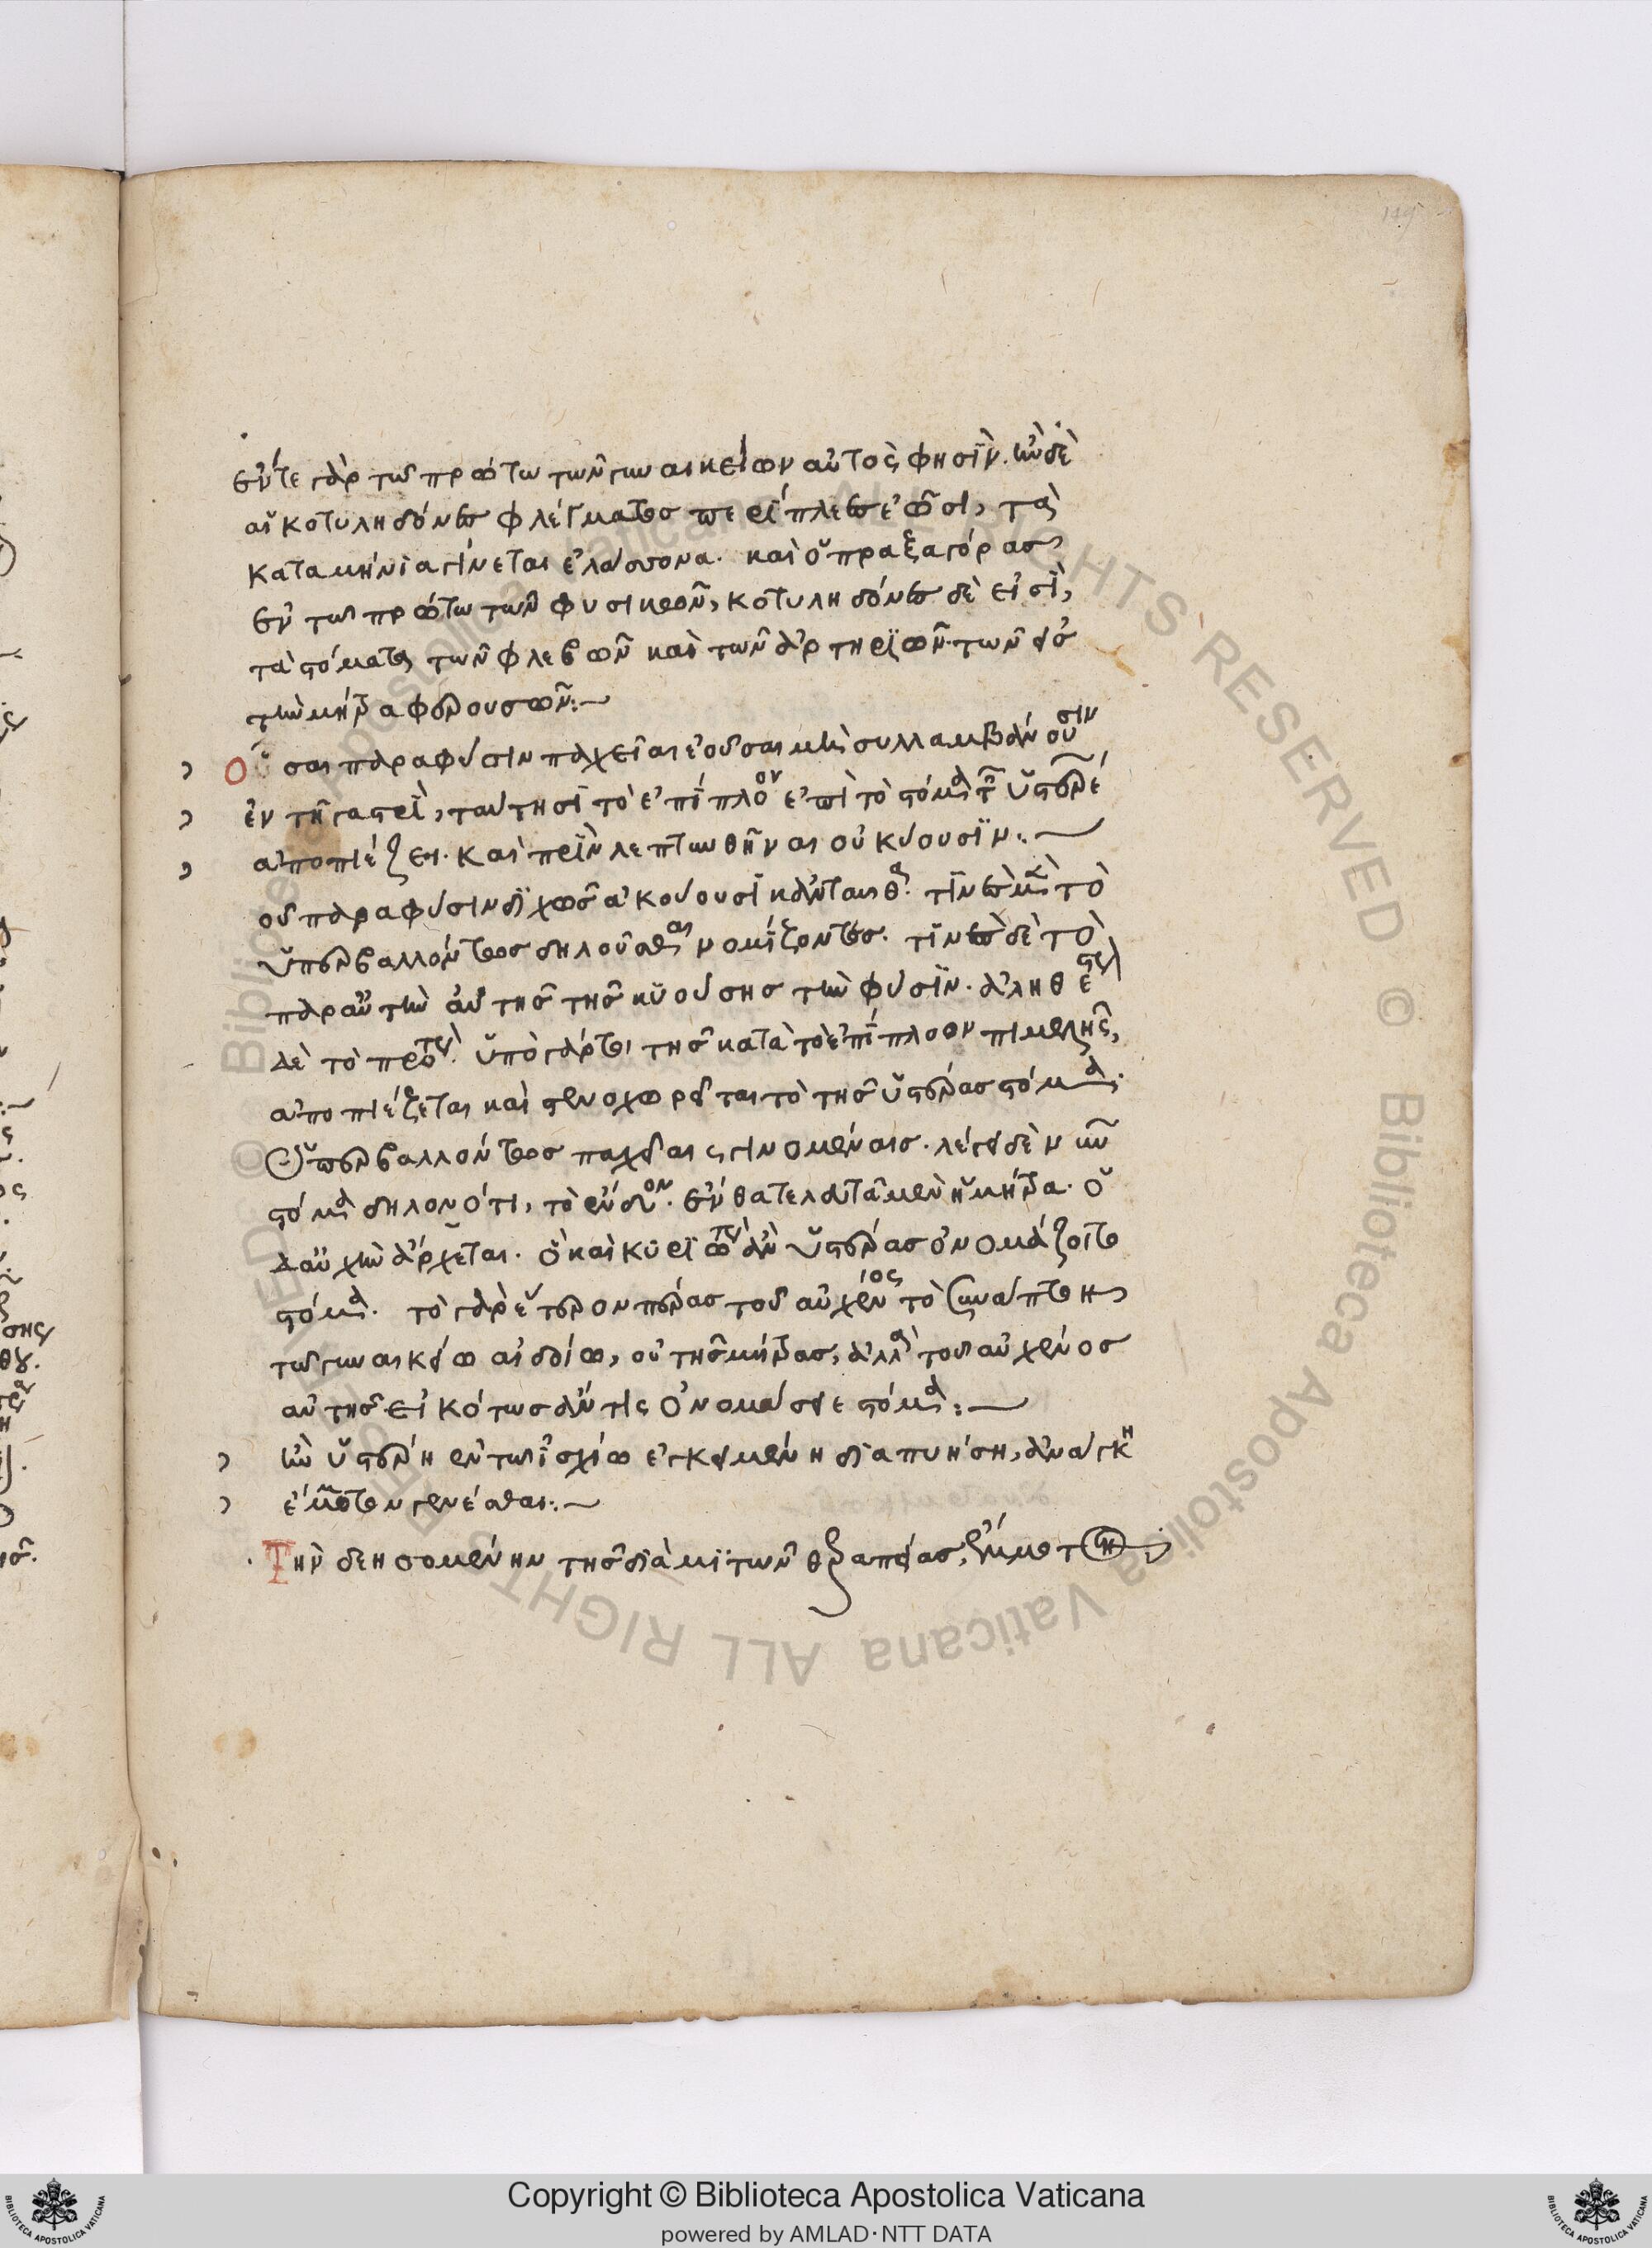 149
ἔν τε γὰρ τῶ πρώτω τῶν γυναικείων αὐτὸς φησὶν. ἢν δὲ
αἱ κοτυληδόνες φλέγματος περίπλεες ἔωσι, τὰ
καταμήνια γίνεται ἐλάσσονα. καὶ ὁ πραξαγόρας
ἐν τῶ πρώτω τῶν φυσικῶν, κοτυληδόνες δὲ εἰσὶ,
τὰ στόματα τῶν φλεβῶν καὶ τῶν ἀρτηριῶν τῶν εἰσ
τὴν μήτραν φερουσῶν:~
Ὁκόσαι παρὰ φύσιν παχεῖαι ἐοῦσαι μὴ συλλαμβάνουσιν
ἐν τῆ γαστρὶ, ταύτησι τὸ ἐπίπλοον ἐπὶ τὸ στόμα τῶν ὑστερέ
αποπιέζει. καὶ πρὶν λεπτυνθῆναι οὐ κύουσιν:~
οὐ παρα φύσιν διχῶς ἀκούουσι κἀνταῦθα. τινὲς μὲν τὸ
ὑπερβαλλόντως δηλοῦσθαι νομίζοντες. τινὲς δὲ τὸ
παρ' αὐτὴν αὐτῆς τῆς κυούσης τὴν φύσιν. ἀληθέστερον
δὲ τὸ πρότερον. ὑπὸ γάρ τοι τῆς κατὰ τὸ ἐπίπλοον πιμελῆς,
αποπιέζεται καὶ στενοχωρεῖται τὸ τῆς ὑστέρας στόμα.
ὑπερβαλλόντως παχείαις γινομέναις. λέγει δὲ νῦν
στόμα δηλονότι, τὸ ἔνδον. ἔνθα τελευτᾶ μὲν ἡ μήτρα. ὁ
δ' αὐχὴν ἄρχεται. ὃ καὶ κυριώτερον ἂν ὑστέρας ὀνομάζοιτο
στόμα. τὸ γὰρ ἕτερον πέρας τοῦ αὐχένος τὸ συνάπτον
τῶ γυναικείω αἰδοίω, οὐ τῆς μήτρας, ἀλλὰ τοῦ αὐχένος
αὐτῆς εἰκότως ἄν τις ὀνομάσειε στόμα:~
ἢν ὑστέρη ἐν τῶ ἰσχίω ἐγκειμένη διαπυήση, ἀνάγκη
ἔμμοτον γενέσθαι:~
Τὴν δεησομένην τῆς διὰ μότων θεραπείας, ἔμμοτόν